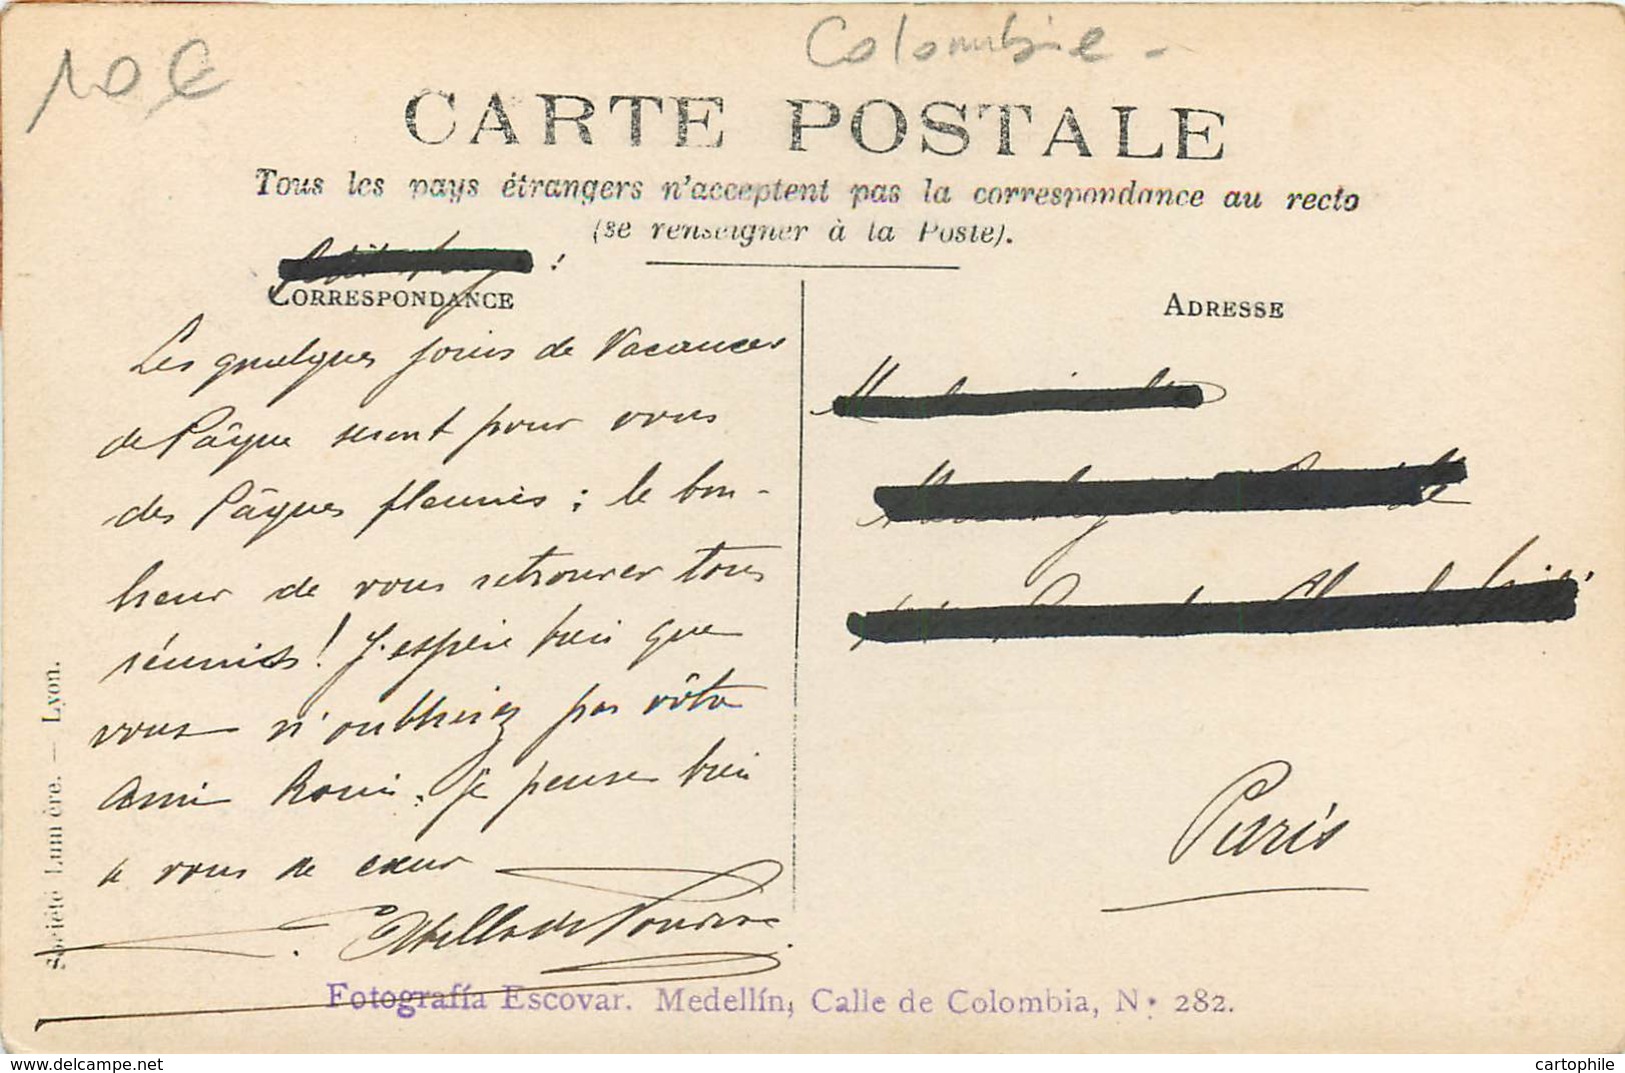 10 €
Colombie -
CARTE POSTALE
Tous les pays étrangers n'acceptent pas la correspondance au recto
(se renseigner à la Poste).
!
CORRESPONDANCE
ADRESSE
Les quelques jours de Vacances
de Pâque seront pour vous
des Pâques fleuries : le bon-
heur de vous retrouver tous
réunis ! J'espère bien que
vous n'oublierez pas vôtre
ami . Je pense bien
à vous de cœur
Paris
Société Lumière. — Lyon.
Fotografía Escovar. Medellín, Calle de Colombia, N.º 282.
delcampe.net
cartophile